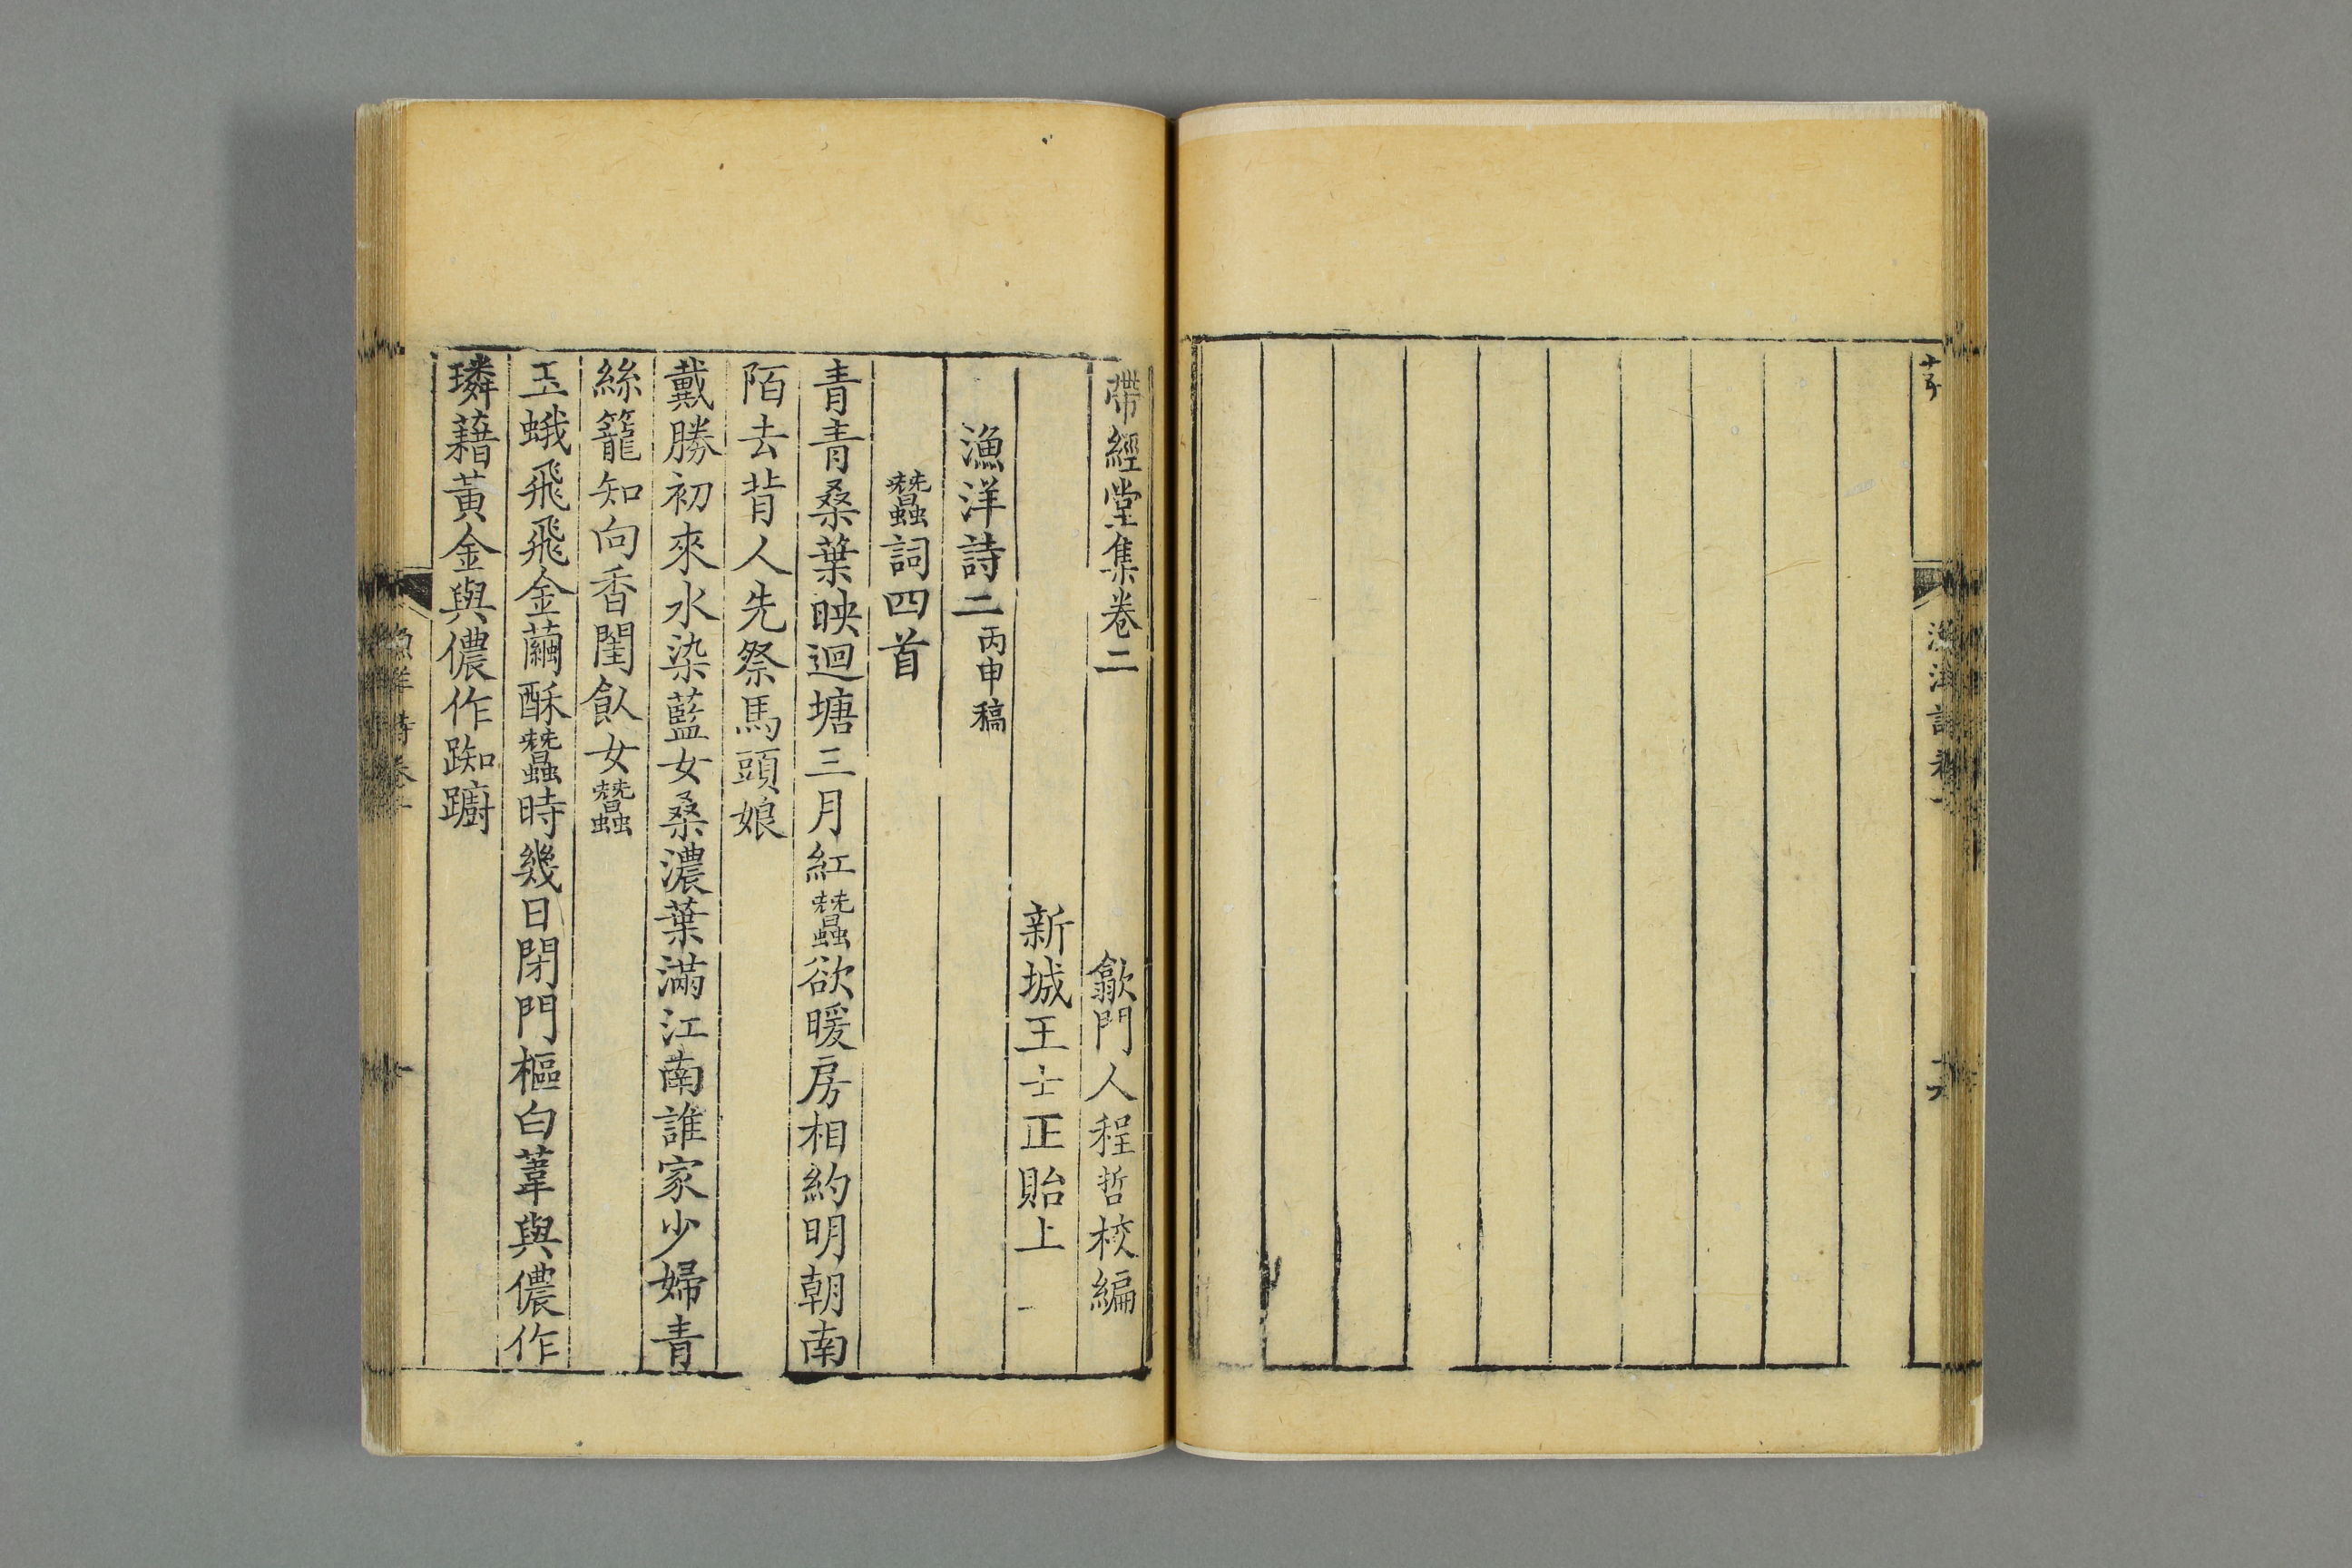 帶經堂集卷二
歙門人程哲校編
新城王士正貽上
漁洋詩二丙申稿
蠶詞四首
青青桑葉映迴塘三月紅蠶欲暖房相約明朝南
陌去背人先祭馬頭娘
戴勝初來水染藍女桑濃葉滿江南誰家少婦青
絲籠知向香閨飤女蠶
玉蛾飛飛金繭酥蠶時幾日閉門樞白葦與儂作
璘藉黃金與儂作踟躕